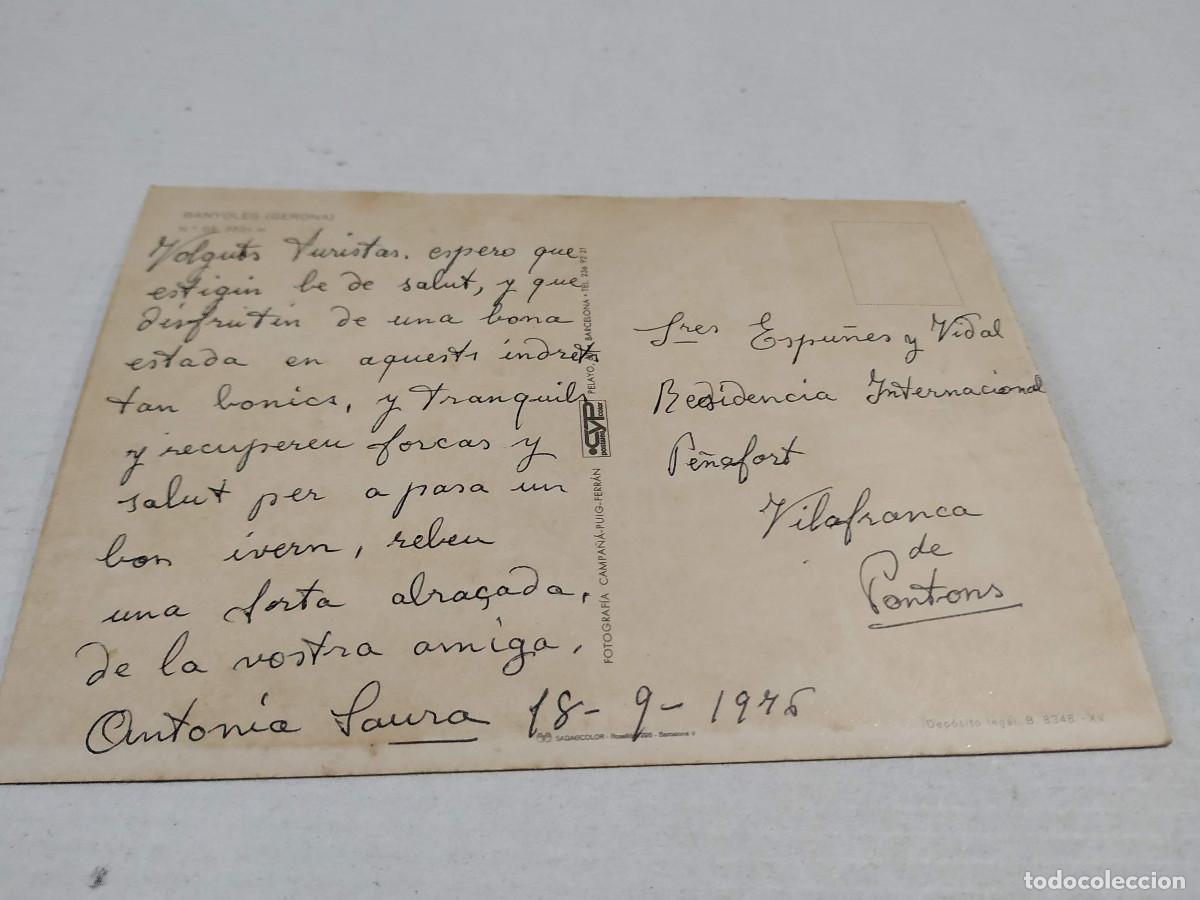 BANYOLES (GERONA)
Volguts turistas. espero que
estigin be de salut, y que
disfrutin de una bona
estada en aquests indrets
tan bonics, y tranquils
y recupereu forcas y
salut per a pasa un
bon ivern, rebeu
una forta abraçada,
de la vostra amiga,
Antonia Saura 18-9-1976
FOTOGRAFÍA CAMPAÑÁ-PUIG-FERRÁN
CYP
postales color
PELAYO, BARCELONA • TEL. 236 92 21
Sres Espuñes y Vidal
Residencia Internacional
Peñafort
Vilafranca
de
Pontons
SADAGCOLOR - Barcelona
Depósito legal B. 8348 - XV
todocoleccion